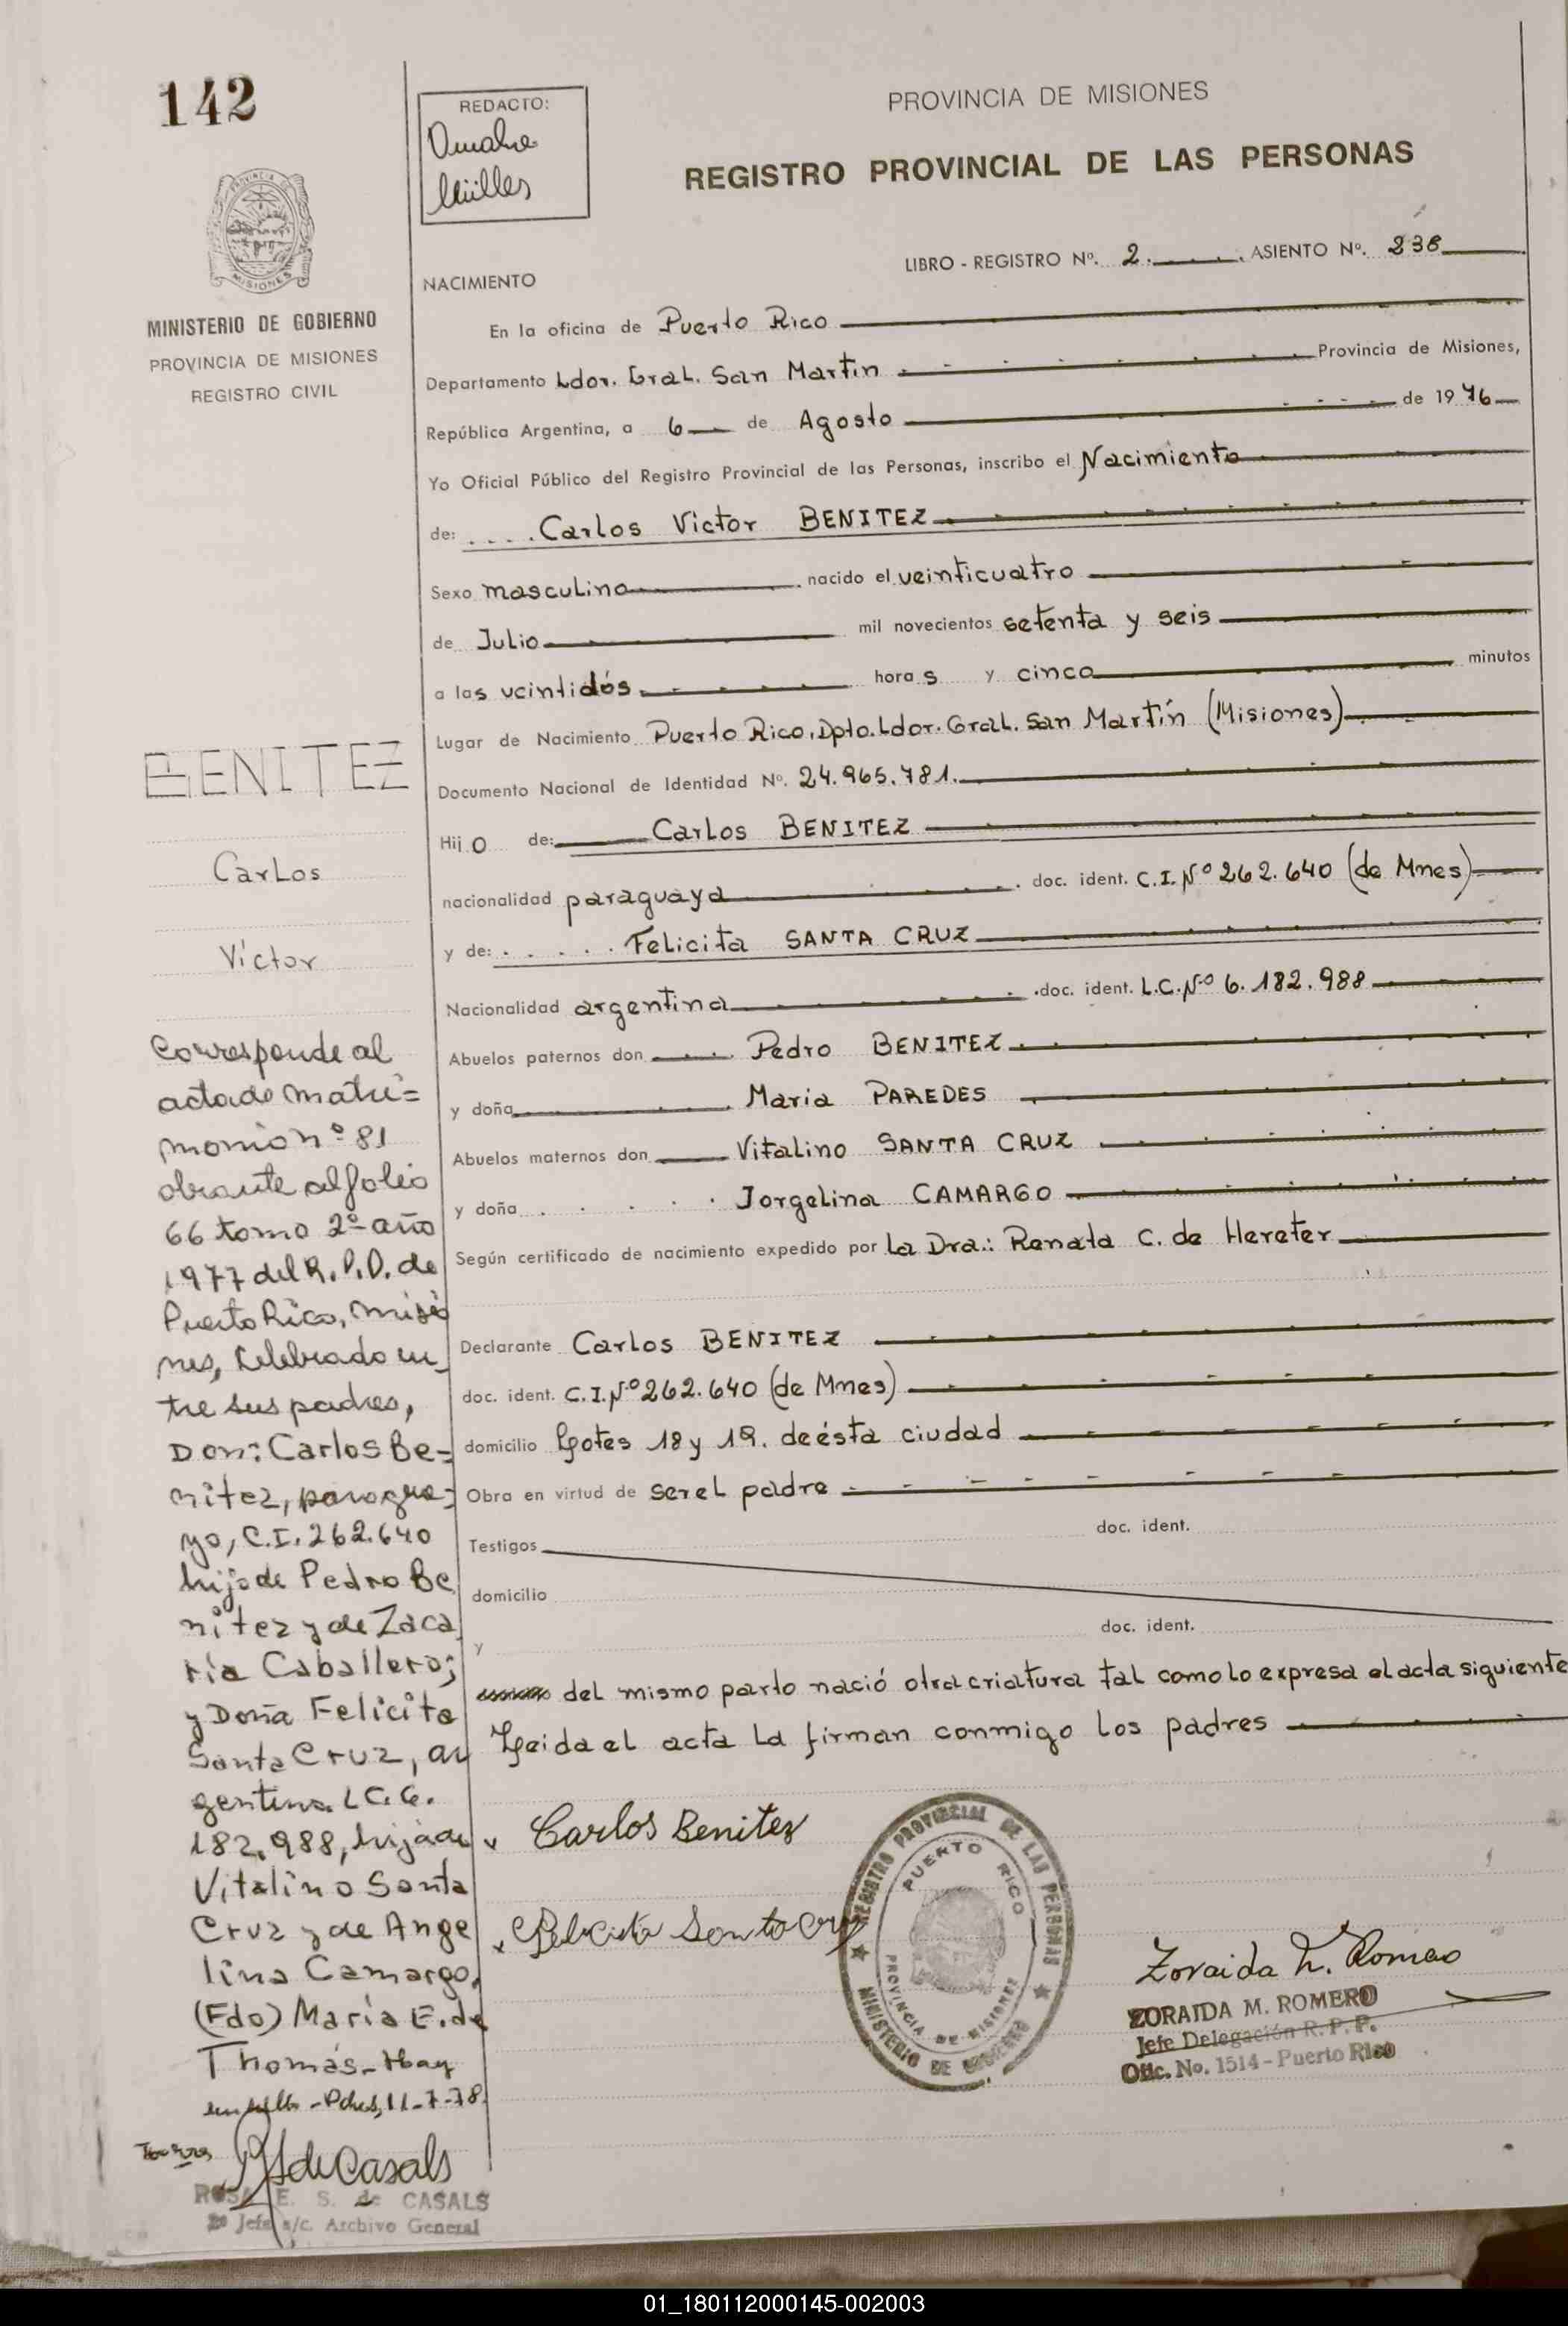 142
REDACTO:
PROVINCIA DE MISIONES
REGISTRO PROVINCIAL DE LAS PERSONAS
PROVINCIA DE
MISIONES
LIBRO - REGISTRO Nº. 2. ASIENTO Nº. 238
MINISTERIO DE GOBIERNO
PROVINCIA DE MISIONES
REGISTRO CIVIL
NACIMIENTO
En la oficina de Puerto Rico
Departamento Ldor. Gral. San Martin Provincia de Misiones,
República Argentina, a 6 de Agosto de 1976
Yo Oficial Público del Registro Provincial de las Personas, inscribo el Nacimiento
de: Carlos Victor BENITEZ
Sexo masculino nacido el veinticuatro
de Julio mil novecientos setenta y seis
a las veintidós horas y cinco minutos
Lugar de Nacimiento Puerto Rico, Dpto. Ldor. Gral. San Martín (Misiones)
Documento Nacional de Identidad Nº. 24.965.781.
Hijo de: Carlos BENITEZ
nacionalidad paraguaya doc. ident. C.I. Nº 262.640 (de Mnes)
y de: Felicita SANTA CRUZ
Nacionalidad argentina doc. ident. L.C. Nº 6.182.988
Abuelos paternos don Pedro BENITEZ
y doña Maria PAREDES
Abuelos maternos don Vitalino SANTA CRUZ
y doña Jorgelina CAMARGO
Según certificado de nacimiento expedido por la Dra.: Renata C. de Hereter
Declarante Carlos BENITEZ
doc. ident. C.I. Nº 262.640 (de Mnes)
domicilio Lotes 18 y 19. de ésta ciudad
Obra en virtud de ser el padre
Testigos doc. ident.
domicilio
y doc. ident.
del mismo parto nació otra criatura tal como lo expresa el acta siguiente
Leida el acta la firman conmigo los padres
Carlos Benitez
Felicita Santa Cruz
REGISTRO PROVINCIAL DE LAS PERSONAS
MINISTERIO DE GOBIERNO
PUERTO RICO
PROVINCIA DE MISIONES
Zoraida M. Romero
ZORAIDA M. ROMERO
Jefe Delegación R. P. P.
Ofic. No. 1514 - Puerto Rico
BENITEZ
Carlos
Víctor
Corresponde al
acta de matri=
monio nº 81
obrante al folio
66 tomo 2º año
1977 del R.P.P. de
Puerto Rico, Misio
nes, Celebrado en
tre sus padres,
Don: Carlos Be=
nitez, paragua=
yo, C.I. 262.640
hijo de Pedro Be
nitez y de Zaca
ría Caballero;
y Doña Felicita
Santa Cruz, ar
gentina L.C. 6.
182.988, hija de
Vitalino Santa
Cruz y de Ange
lina Camargo,
(Fdo) María E. de
Thomás - Hay
un sello - Pdas, 11-7-78.
ROSA E. S. de CASALS
2º Jefe a/c. Archivo General
01_180112000145-002003